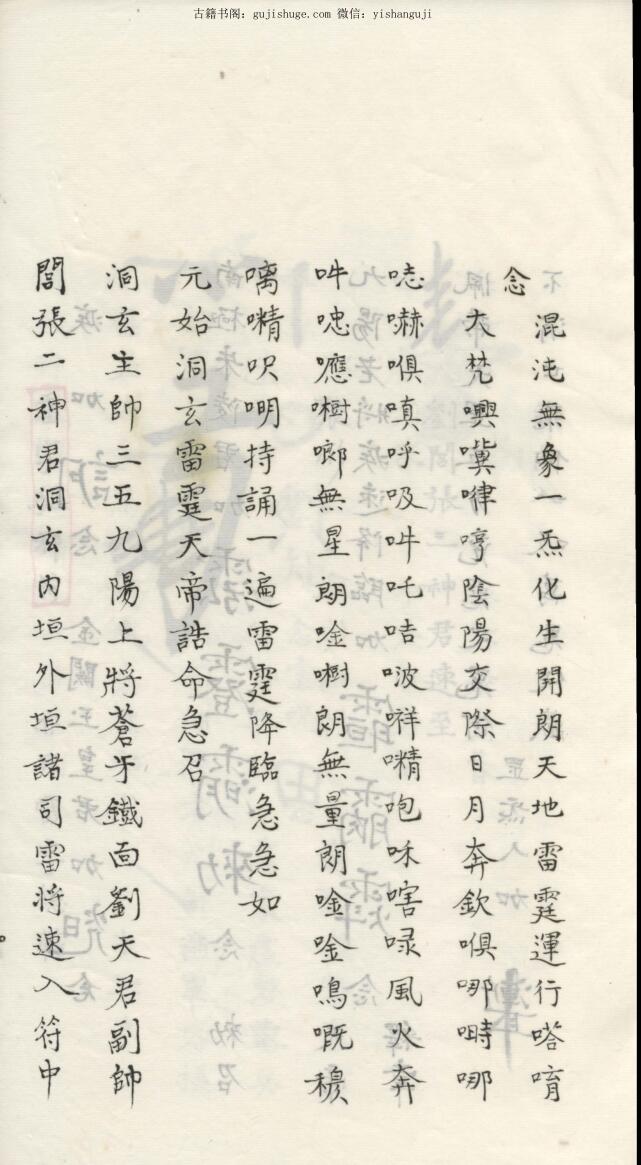 古籍书阁：gujishuge.com 微信：yishanguji
念
混沌無象一炁化生開朗天地雷霆運行嗒唷
大梵㘔嘳嘩哼陰陽交際日月奔欽唄哪嘶哪
唴嚇唄嗔呼吸吽吒咭啵哶㗲咆咊嗐㖨風火奔
吽唿噟㘍啷無星朗唫㘍朗無量朗唫唫鳴嘅穆
㗫㗲呎明持誦一遍雷霆降臨急急如
元始洞玄雷霆天帝誥命急召
洞玄生帥三五九陽上將蒼牙鐵面劉天君副帥
閻張二神君洞玄內垣外垣諸司雷將速入符中